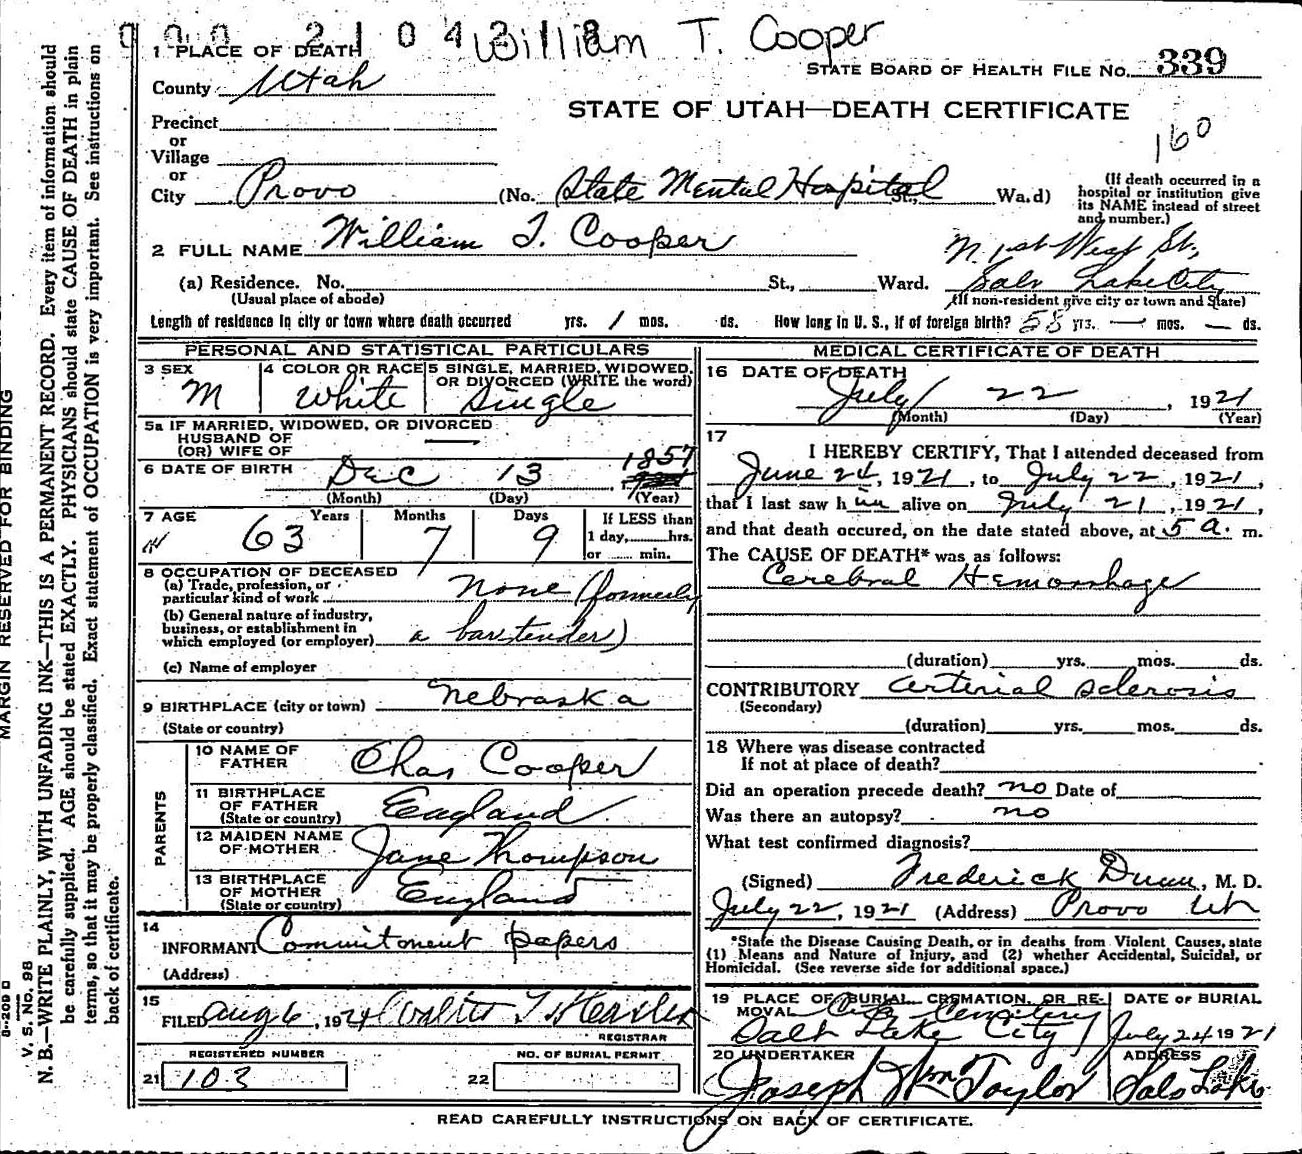 William T. Cooper
STATE BOARD OF HEALTH FILE NO. 339
STATE OF UTAH—DEATH CERTIFICATE
160
1 PLACE OF DEATH
County Utah
Precinct
or
Village
or
City Provo (No. State Mental Hospital St., Ward)
(If death occurred in a hospital or institution give its NAME instead of street and number.)
2 FULL NAME William T. Cooper
N. 1st West St,
(a) Residence. No. St., Ward. Salt Lake City
(Usual place of abode) (If non-resident give city or town and State)
Length of residence in city or town where death occurred yrs. 1 mos. ds. How long in U. S., if of foreign birth? 58 yrs. — mos. — ds.
PERSONAL AND STATISTICAL PARTICULARS
3 SEX M
4 COLOR OR RACE White
5 SINGLE, MARRIED, WIDOWED, OR DIVORCED (WRITE the word) Single
5a IF MARRIED, WIDOWED, OR DIVORCED
HUSBAND OF
(OR) WIFE OF —
6 DATE OF BIRTH Dec 13, 1857
(Month) (Day) (Year)
7 AGE 63 Years 7 Months 9 Days
If LESS than
1 day,......hrs.
or ...... min.
8 OCCUPATION OF DECEASED
(a) Trade, profession, or
particular kind of work none (formerly
(b) General nature of industry,
business, or establishment in
which employed (or employer) a bartender)
(c) Name of employer
9 BIRTHPLACE (city or town) Nebraska
(State or country)
PARENTS
10 NAME OF FATHER Chas Cooper
11 BIRTHPLACE OF FATHER England
(State or country)
12 MAIDEN NAME OF MOTHER Jane Thompson
13 BIRTHPLACE OF MOTHER England
(State or country)
14
INFORMANT Commitment papers
(Address)
15
FILED Aug 6, 192
REGISTRAR
REGISTERED NUMBER
21 103
NO. OF BURIAL PERMIT
22
MEDICAL CERTIFICATE OF DEATH
16 DATE OF DEATH
July 22, 1921
(Month) (Day) (Year)
17
I HEREBY CERTIFY, That I attended deceased from
June 24, 1921, to July 22, 1921,
that I last saw him alive on July 21, 1921,
and that death occured, on the date stated above, at 5 a. m.
The CAUSE OF DEATH* was as follows:
Cerebral Hemorrhage
(duration) yrs. mos. ds.
CONTRIBUTORY arterial sclerosis
(Secondary)
(duration) yrs. mos. ds.
18 Where was disease contracted
If not at place of death?
Did an operation precede death? no Date of
Was there an autopsy? no
What test confirmed diagnosis?
(Signed) Frederick Dunn, M. D.
July 22, 1921 (Address) Provo Ut
*State the Disease Causing Death, or in deaths from Violent Causes, state
(1) Means and Nature of Injury, and (2) whether Accidental, Suicidal, or
Homicidal. (See reverse side for additional space.)
19 PLACE OF BURIAL, CREMATION, OR REMOVAL
City Cemetery
Salt Lake City
DATE OF BURIAL
July 24 1921
20 UNDERTAKER
Joseph Wm Taylor
ADDRESS
Salt Lake
READ CAREFULLY INSTRUCTIONS ON BACK OF CERTIFICATE.
MARGIN RESERVED FOR BINDING
V. S. NO. 98
N. B.—WRITE PLAINLY, WITH UNFADING INK—THIS IS A PERMANENT RECORD. Every item of information should
be carefully supplied. AGE should be stated EXACTLY. PHYSICIANS should state CAUSE OF DEATH in plain
terms, so that it may be properly classified. Exact statement of OCCUPATION is very important. See instructions on
back of certificate.